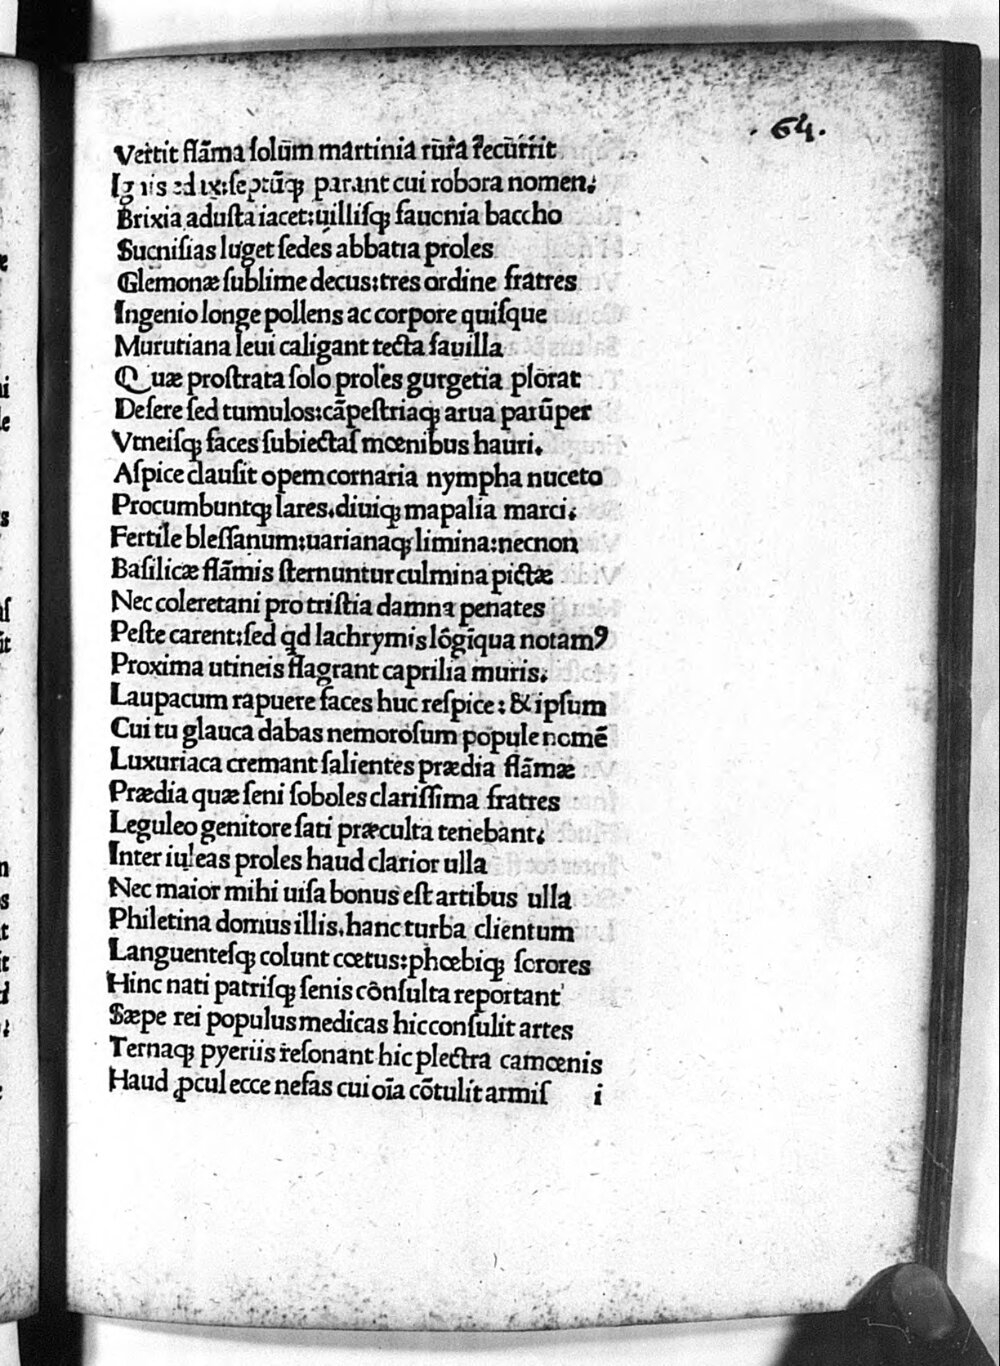 .64.
Vertit flãma ſolũm martinia rũra recũrrit
Ignis ad ix:ſeptũq; parant cui robora nomen.
Brixia aduſta iacet:uilliſq; faucnia baccho
Sucniſias luget ſedes abbatia proles
Glemonæ ſublime decus:tres ordine fratres
Ingenio longe pollens ac corpore quiſque
Murutiana leui caligant tecta fauilla
Quæ proſtrata ſolo proles gurgetia plorat
Deſere ſed tumulos:cãpeſtriaq; arua parũper
Vtneiſq; faces ſubiectaſ mœnibus hauri.
Aſpice clauſit opem cornaria nympha nuceto
Procumbuntq; lares.diuiq; mapalia marci.
Fertile bleſſanum:uarianaq; limina:necnon
Baſilicæ flãmis ſternuntur culmina pictæ
Nec coleretani pro triſtia damna penates
Peſte carent:ſed qd lachrymis lõgĩqua notamꝰ
Proxima utineis flagrant caprilia muris.
Laupacum rapuere faces huc reſpice: & ipſum
Cui tu glauca dabas nemoroſum popule nomẽ
Luxuriaca cremant ſalientes prædia flãmæ
Prædia quæ ſeni ſoboles clariſſima fratres
Leguleo genitore ſati præculta tenebant.
Inter iuleas proles haud clarior ulla
Nec maior mihi uiſa bonus eſt artibus ulla
Philetina domus illis.hanc turba clientum
Languenteſq; colunt cœtus:phœbiq; ſorores
Hinc nati patriſq; ſenis cõnſulta reportant
Sæpe rei populus medicas hic conſulit artes
Ternaq; pyeriis reſonant hic plectra camœnis
Haud ꝓcul ecce nefas cui oĩa cõtulit armiſ i